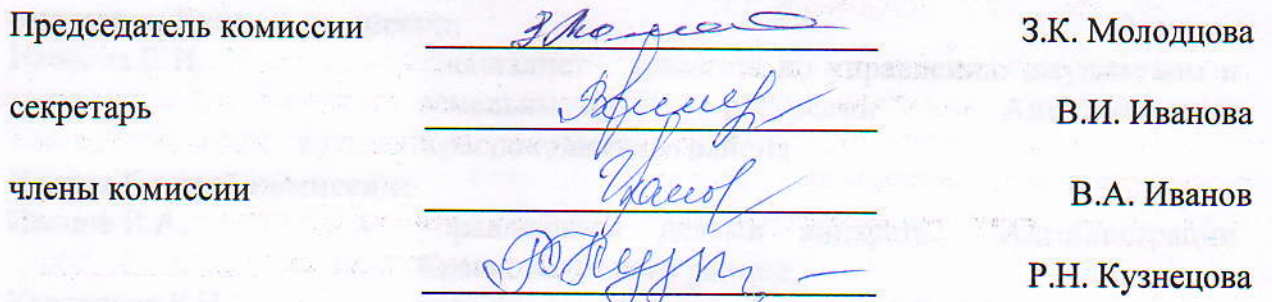 Председатель комиссии З.К. Молодцова
секретарь В.И. Иванова
члены комиссии В.А. Иванов
Р.Н. Кузнецова